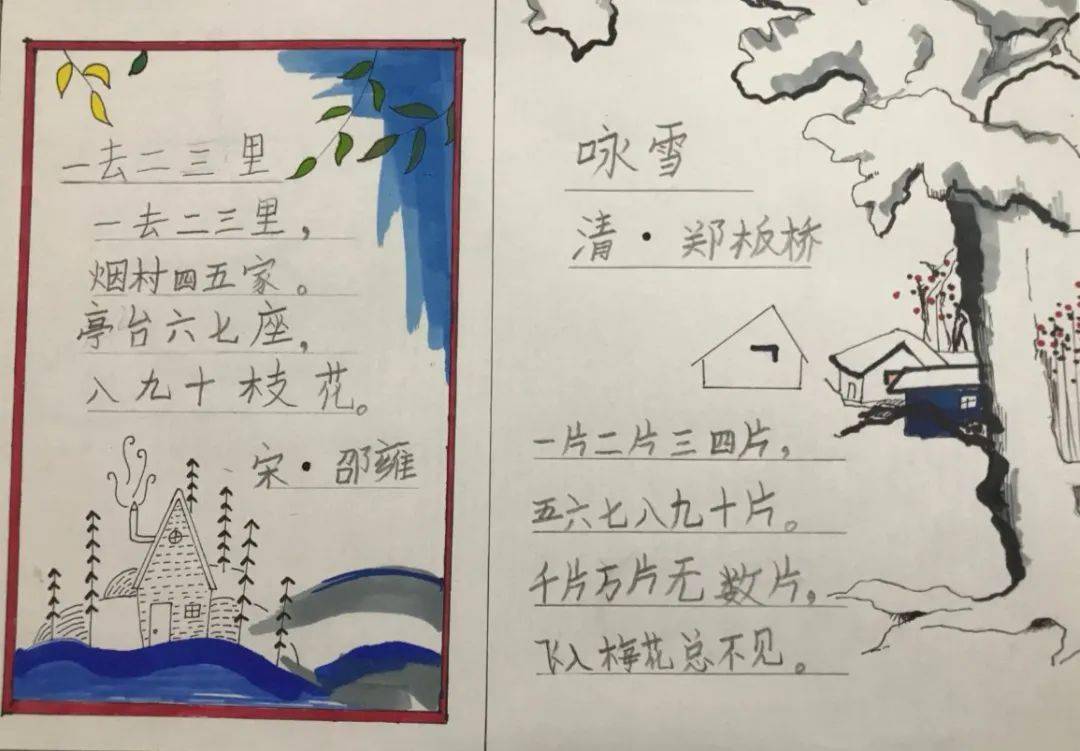 一去二三里
一去二三里，
烟村四五家。
亭台六七座，
八九十枝花。
宋·邵雍
咏雪
清·郑板桥
一片二片三四片，
五六七八九十片。
千片万片无数片，
飞入梅花总不见。